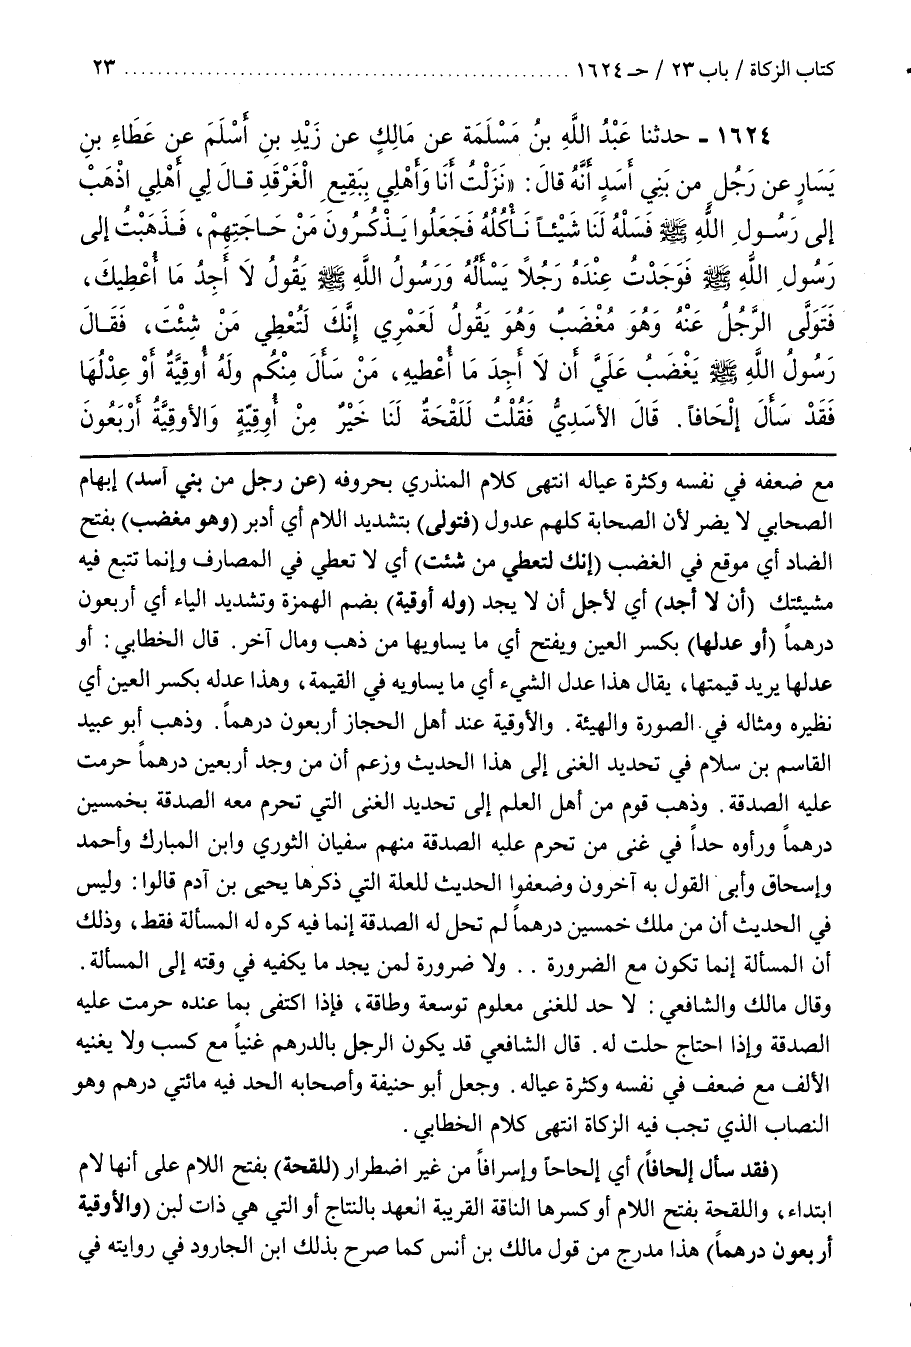 كتاب الزكاة / باب ٢٣ / حـ ١٦٢٤ ........................................................ ٢٣
١٦٢٤ ـ حدثنا عَبْدُ اللَّهِ بنُ مَسْلَمَة عن مَالِكٍ عن زَيْدِ بنِ أَسْلَمَ عن عَطَاءِ بنِ
يَسَارٍ عن رَجُلٍ من بَنِي أَسَدٍ أَنَّهُ قالَ: «نَزَلْتُ أَنَا وَأَهْلِي بِبَقِيعِ الْغَرْقَدِ قـالَ لِي أَهْلِي اذْهَبْ
إلى رَسُـولِ اللَّهِ ﷺ فَسَلْهُ لَنَا شَيْئـاً نَـأْكُلُهُ فَجَعَلُوا يَـذْكُـرُونَ مَنْ حَـاجَتِهِمْ، فَـذَهَبْتُ إلى
رَسُولِ اللَّهِ ﷺ فَوَجَدْتُ عِنْدَهُ رَجُلاً يَسْأَلُهُ وَرَسُولُ اللَّهِ ﷺ يَقُولُ لَا أَجِدُ مَا أُعْطِيكَ،
فَتَوَلَّى الرَّجُلُ عَنْهُ وَهُوَ مُغْضَبٌ وَهُوَ يَقُولُ لَعَمْرِي إِنَّكَ لَتُعْطِي مَنْ شِئْتَ، فَقَـالَ
رَسُولُ اللَّهِ ﷺ يَغْضَبُ عَلَيَّ أَن لَا أَجِدَ مَا أُعْطِيهِ، مَنْ سَأَلَ مِنْكُم ولَهُ أُوقِيَّةٌ أَوْ عِدْلُهَا
فَقَدْ سَأَلَ إِلْحَافاً. قَالَ الأسَدِيُّ فَقُلْتُ لَلَقْحَةٌ لَنَا خَيْرٌ مِنْ أُوقِيّةٍ وَالأوقِيَّةُ أَرْبَعُونَ
مع ضعفه في نفسه وكثرة عياله انتهى كلام المنذري بحروفه (عن رجل من بني أسد) إبهام
الصحابي لا يضر لأن الصحابة كلهم عدول (فتولى) بتشديد اللام أي أدبر (وهو مغضب) بفتح
الضاد أي موقع في الغضب (إنك لتعطي من شئت) أي لا تعطي في المصارف وإنما تتبع فيه
مشيئتك (أن لا أجد) أي لأجل أن لا يجد (وله أوقية) بضم الهمزة وتشديد الياء أي أربعون
درهماً (أو عدلها) بكسر العين ويفتح أي ما يساويها من ذهب ومال آخر. قال الخطابي: أو
عدلها يريد قيمتها، يقال هذا عدل الشيء أي ما يساويه في القيمة، وهذا عدله بكسر العين أي
نظيره ومثاله في الصورة والهيئة. والأوقية عند أهل الحجاز أربعون درهماً. وذهب أبو عبيد
القاسم بن سلام في تحديد الغنى إلى هذا الحديث وزعم أن من وجد أربعين درهماً حرمت
عليه الصدقة. وذهب قوم من أهل العلم إلى تحديد الغنى التي تحرم معه الصدقة بخمسين
درهماً ورأوه حداً في غنى من تحرم عليه الصدقة منهم سفيان الثوري وابن المبارك وأحمد
وإسحاق وأبى القول به آخرون وضعفوا الحديث للعلة التي ذكرها يحيى بن آدم قالوا: وليس
في الحديث أن من ملك خمسين درهماً لم تحل له الصدقة إنما فيه كره له المسألة فقط، وذلك
أن المسألة إنما تكون مع الضرورة .. ولا ضرورة لمن يجد ما يكفيه في وقته إلى المسألة.
وقال مالك والشافعي: لا حد للغنى معلوم توسعة وطاقة، فإذا اكتفى بما عنده حرمت عليه
الصدقة وإذا احتاج حلت له. قال الشافعي قد يكون الرجل بالدرهم غنياً مع كسب ولا يغنيه
الألف مع ضعف في نفسه وكثرة عياله. وجعل أبو حنيفة وأصحابه الحد فيه مائتي درهم وهو
النصاب الذي تجب فيه الزكاة انتهى كلام الخطابي.
(فقد سأل إلحافاً) أي إلحاحاً وإسرافاً من غير اضطرار (للقحة) بفتح اللام على أنها لام
ابتداء، واللقحة بفتح اللام أو كسرها الناقة القريبة العهد بالنتاج أو التي هي ذات لبن (والأوقية
أربعون درهماً) هذا مدرج من قول مالك بن أنس كما صرح بذلك ابن الجارود في روايته في